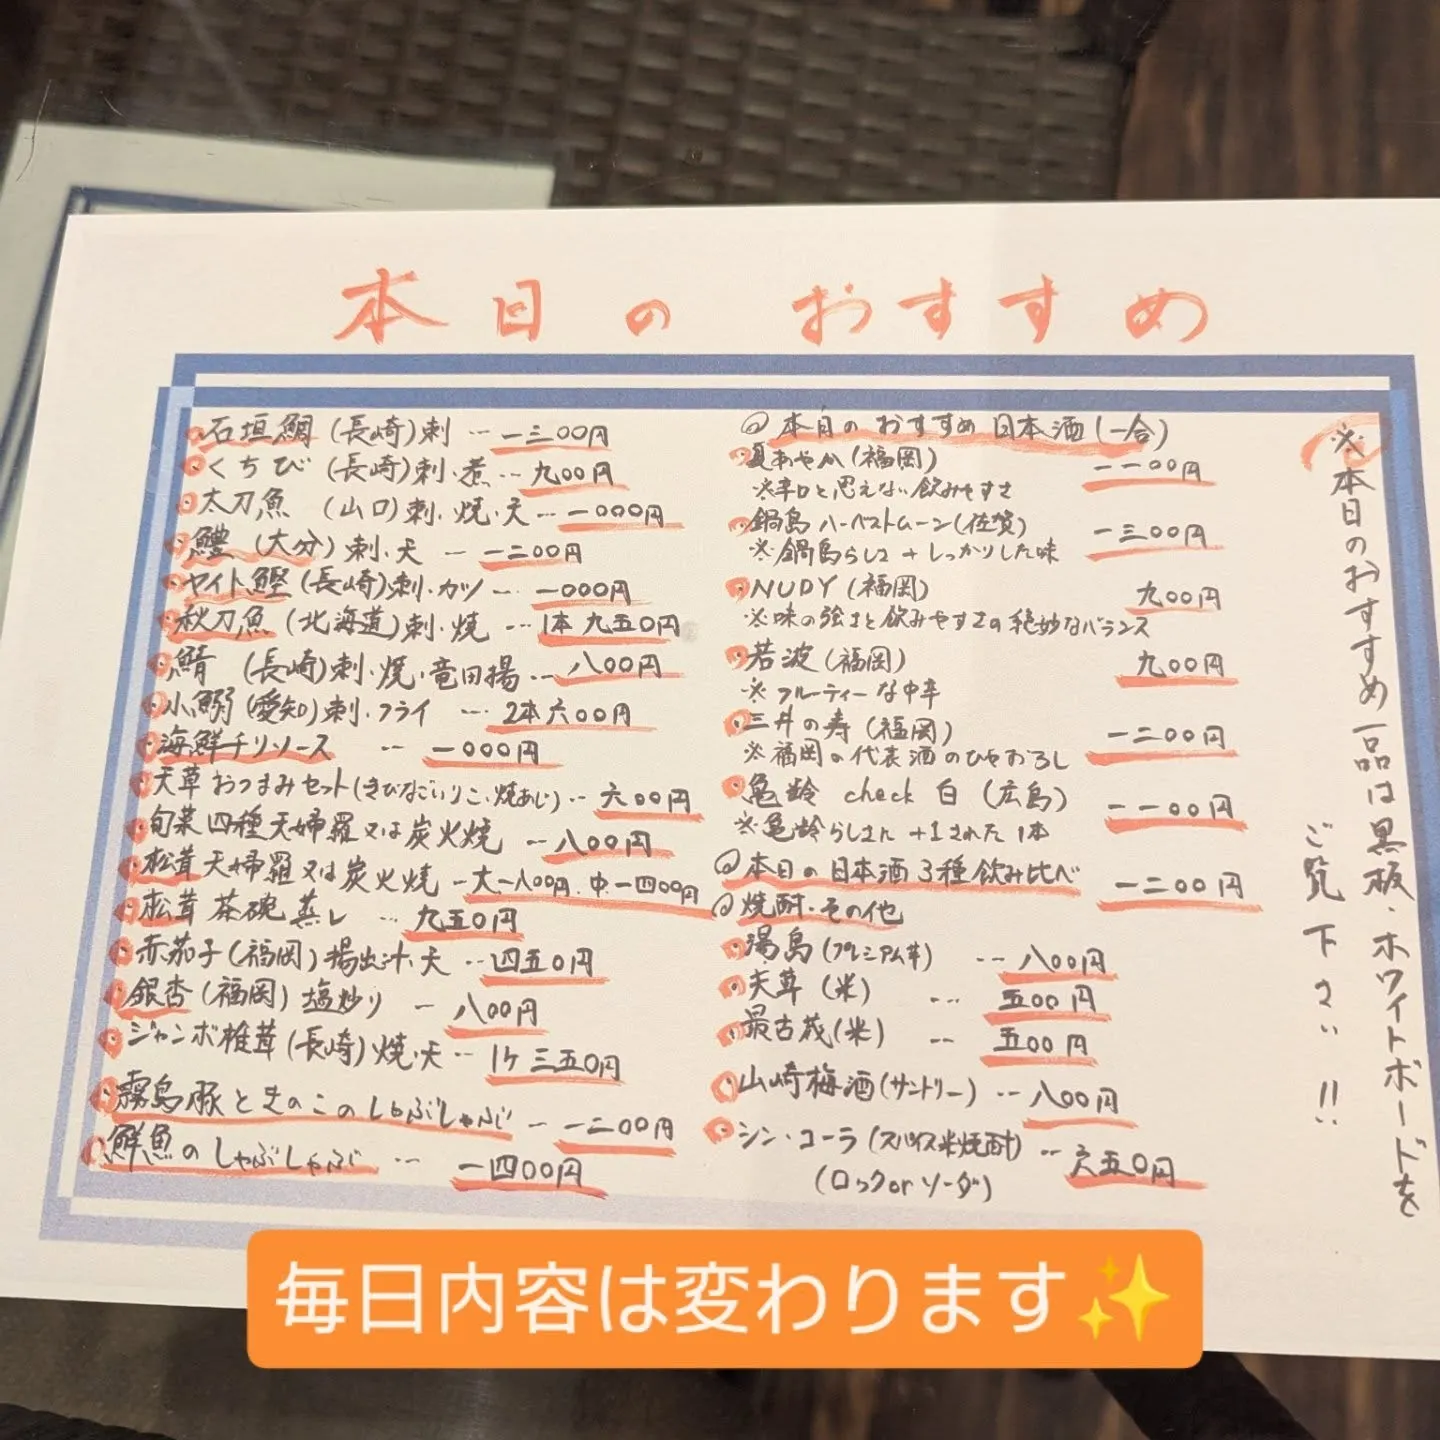 本日のおすすめ
・石垣鯛(長崎)刺 … 一三〇〇円
・くちび(長崎)刺・煮 … 九〇〇円
・太刀魚(山口)刺・焼・天 … 一〇〇〇円
・鱧(大分)刺・天 … 一二〇〇円
・ヤイト鰹(長崎)刺・カツ … 一〇〇〇円
・秋刀魚(北海道)刺・焼 … 1本 九五〇円
・鯖(長崎)刺・焼・竜田揚 … 八〇〇円
・小鰯(愛知)刺・フライ … 2本 六〇〇円
・海鮮チリソース … 一〇〇〇円
・天草おつまみセット(きびなごいりこ・焼あじ) … 六〇〇円
・旬菜四種天婦羅又は炭火焼 … 八〇〇円
・松茸天婦羅又は炭火焼 ー大一八〇〇円.中一四〇〇円
・松茸茶碗蒸し … 九五〇円
・赤茄子(福岡)揚出汁・天 … 四五〇円
・銀杏(福岡)塩炒り … 八〇〇円
・ジャンボ椎茸(長崎)焼・天 … 1ケ 三五〇円
・霧島豚ときのこのしゃぶしゃぶ … 一二〇〇円
・鮮魚のしゃぶしゃぶ … 一四〇〇円
◎本日のおすすめ日本酒(一合)
・夏あやか(福岡) 一一〇〇円
※辛口と思えない飲みやすさ
・鍋島ハーベストムーン(佐賀) 一三〇〇円
※鍋島らしさ+しっかりした味
・NUDY(福岡) 九〇〇円
※味の強さと飲みやすさの絶妙なバランス
・若波(福岡) 九〇〇円
※フルーティーな中辛
・三井の寿(福岡) 一二〇〇円
※福岡の代表酒のひやおろし
・亀齢 check 白(広島) 一一〇〇円
※亀齢らしさに+1された1本
◎本日の日本酒3種飲み比べ 一二〇〇円
◎焼酎・その他
・湯島(プレミアム芋) … 八〇〇円
・天草(米) … 五〇〇円
・最古蔵(米) … 五〇〇円
・山崎梅酒(サントリー) … 八〇〇円
・シン・コーラ(スパイス米焼酎) … 六五〇円
(ロックorソーダ)
※本日のおすすめ一品は黒板・ホワイトボードを
ご覧下さい!!
毎日内容は変わります✨